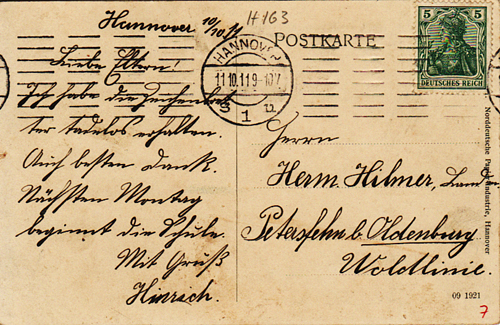 Hannover 10/10 11
H 163
Liebe Eltern!
Ich habe die Zeichenbret
ter tadellos erhalten.
Auch besten Dank.
Nächsten Montag
beginnt die Schule.
Mit Gruß
Hinrich.
POSTKARTE
HANNOVER
11.10.11 9-10V
1
5 5
DEUTSCHES REICH
Herrn
Herm. Hilmer,
Petersfehn b. Oldenburg
Woldlinie.
Norddeutsche Papier-Industrie, Hannover
09 1921
7